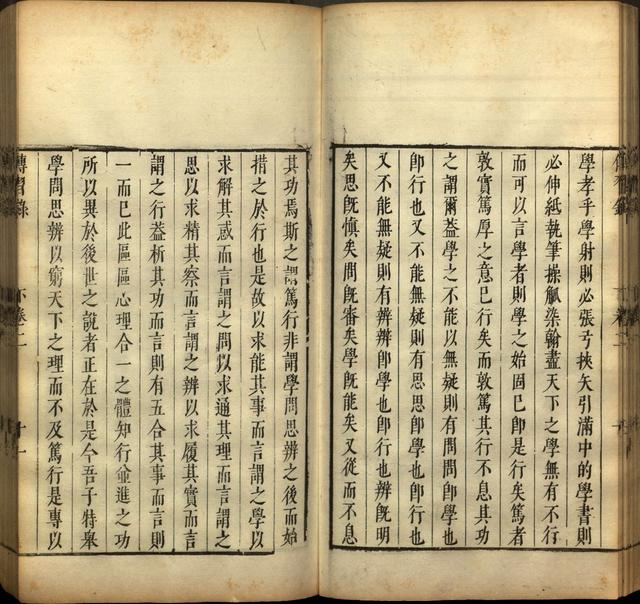 學孝乎學射則必張弓挾矢引滿中的學書則
必伸紙執筆操觚染翰盡天下之學無有不行
而可以言學者則學之始固已即是行矣篤者
敦實篤厚之意已行矣而敦篤其行不息其功
之謂爾葢學之不能以無疑則有問問即學也
即行也又不能無疑則有思思即學也即行也
又不能無疑則有辨辨即學也即行也辨旣明
矣思旣慎矣問旣審矣學旣能矣又從而不息
其功焉斯之謂篤行非謂學問思辨之後而始
措之於行也是故以求能其事而言謂之學以
求解其惑而言謂之問以求通其理而言謂之
思以求精其察而言謂之辨以求履其實而言
謂之行葢析其功而言則有五合其事而言則
一而已此區區心理合一之體知行並進之功
所以異於後世之說者正在於是今吾子特舉
學問思辨以窮天下之理而不及篤行是專以
傳習錄
下卷二
十一